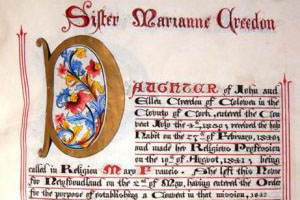 Sister Marianne Creedon
DAUGHTER of John and
Ellen Creedon of Coloven in the
County of Cork, entered the Con
vent July the 4th, received the holy
Habit on the 25th of February,
and made her Religious Profession
on the 19th of August, being
called in Religion Mary Francis. She left this None
for Newfoundland on the 2nd of May, having entered the Order
for the purpose of establishing a Convent in that mission,